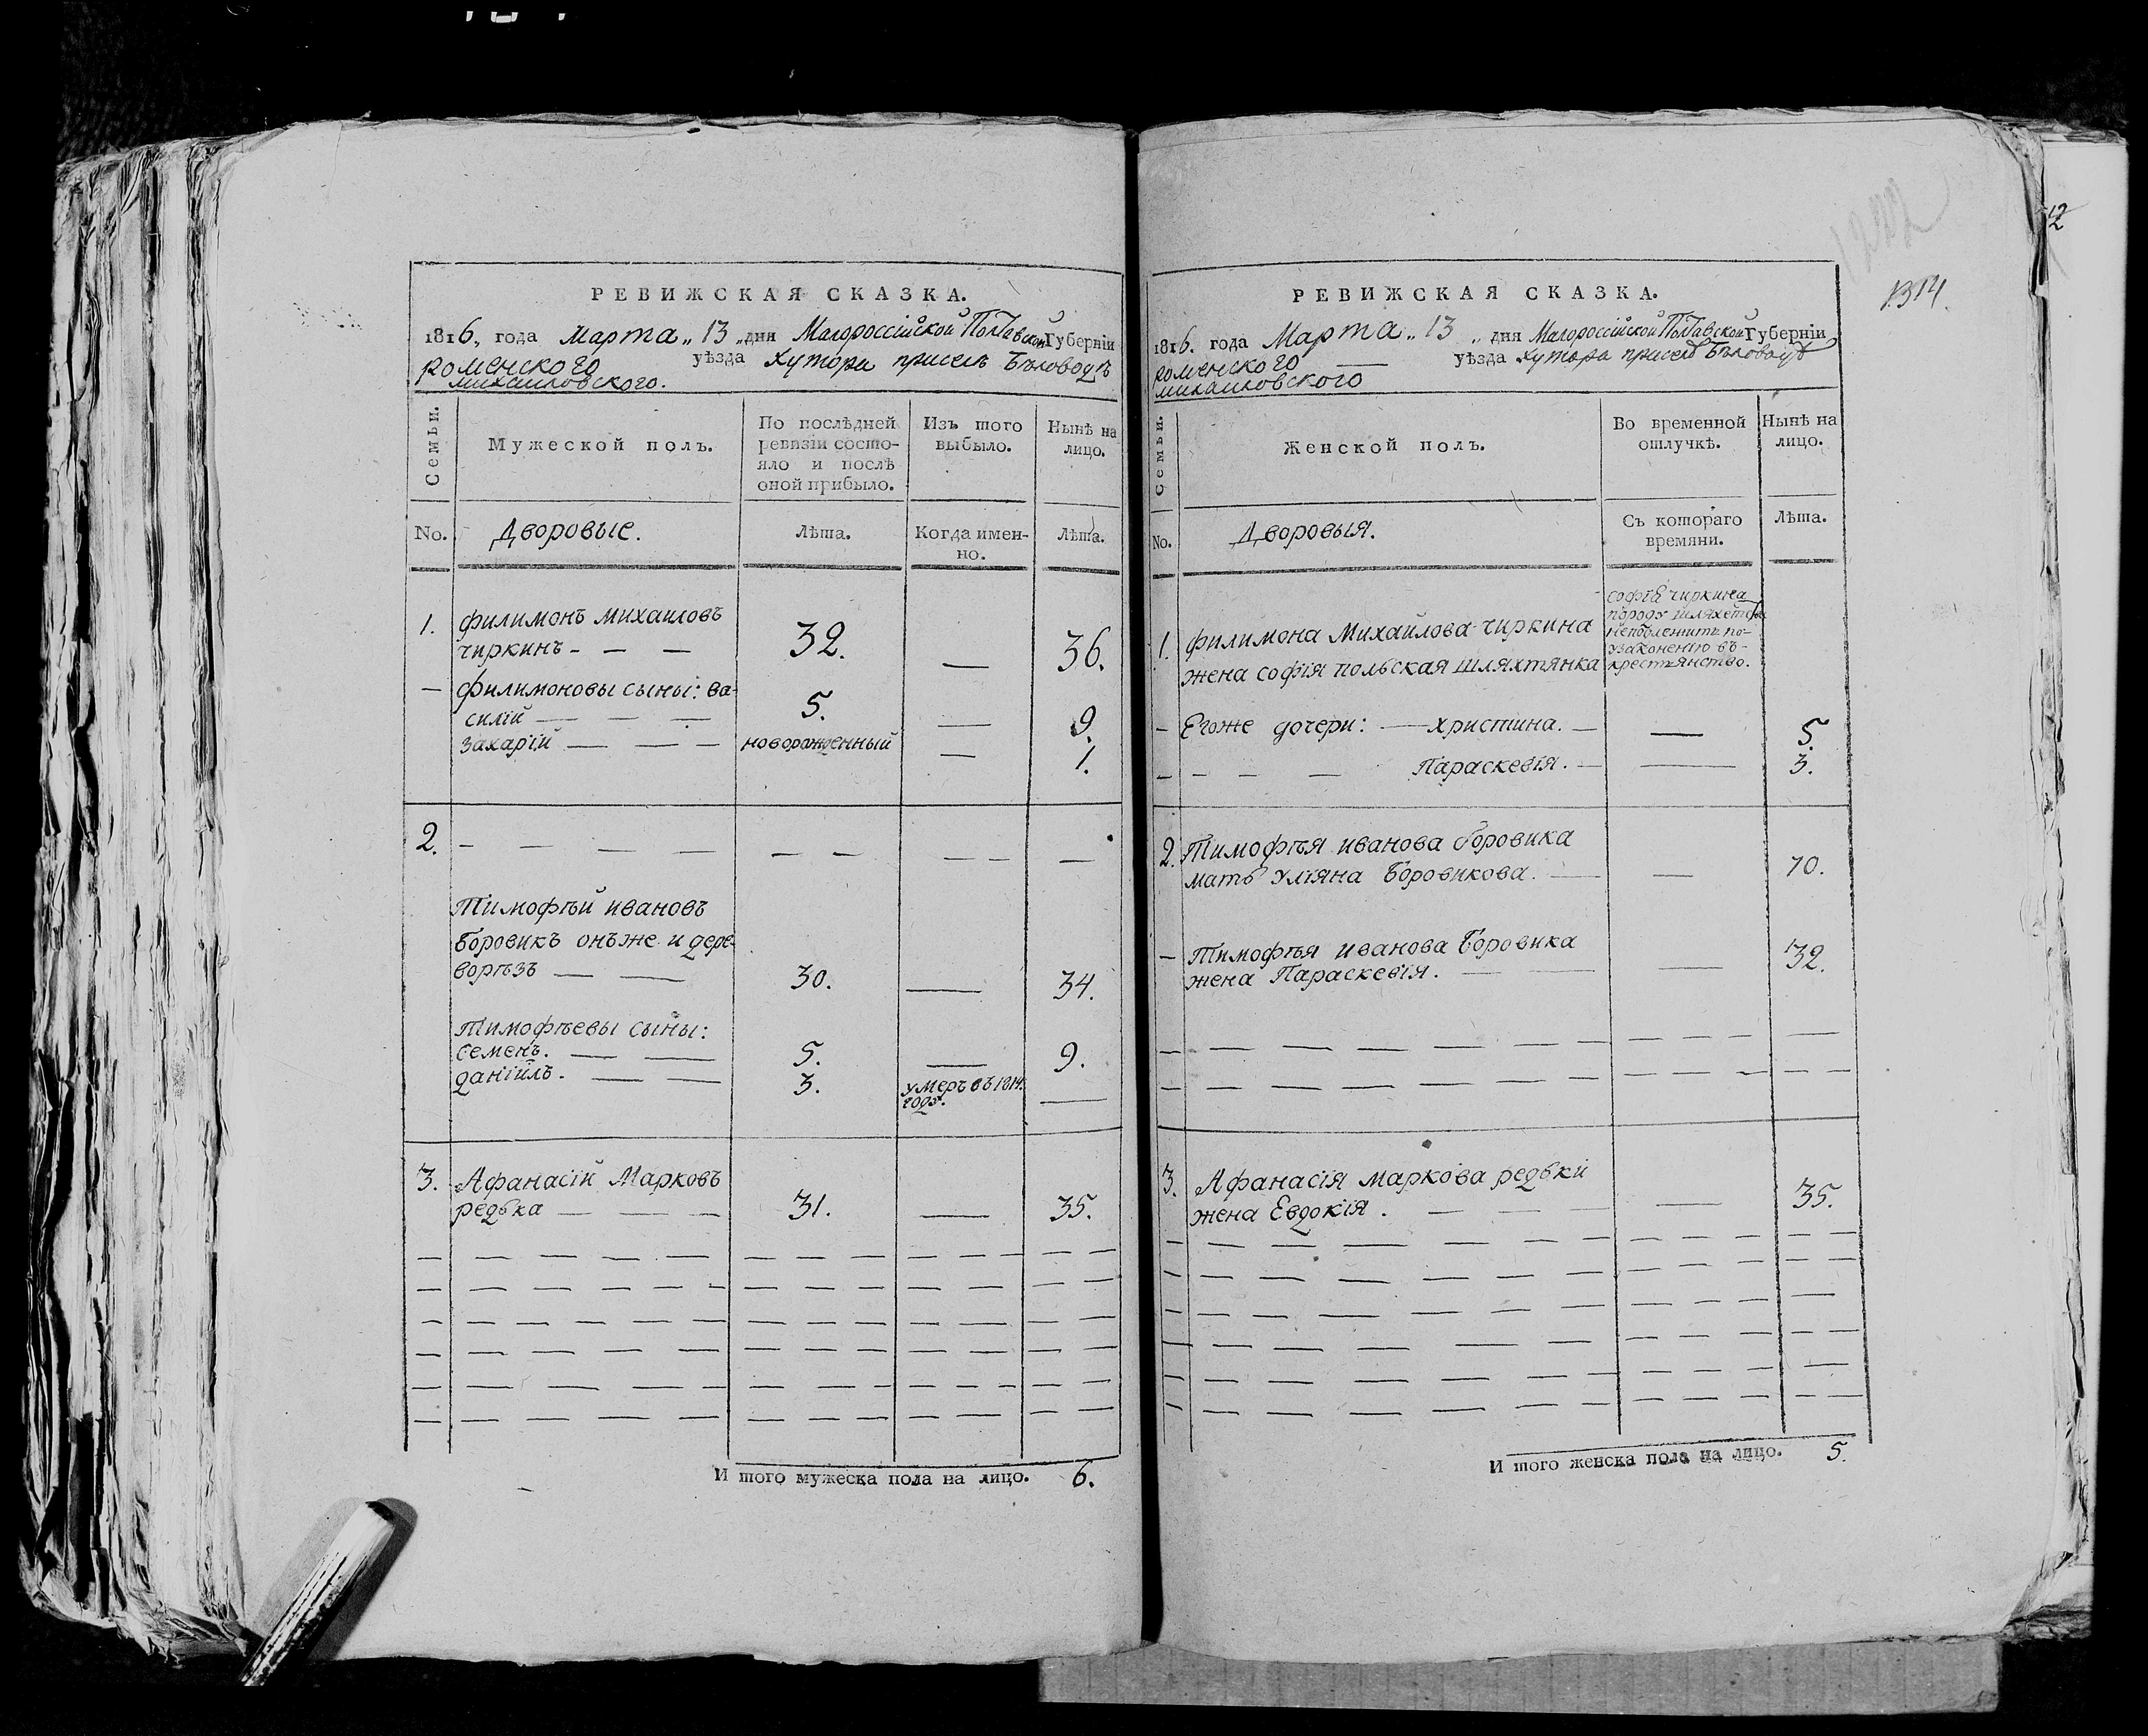 РЕВИЖСКАЯ СКАЗКА.
1816, года Марта „ 13 „ дни Малороссійской Полтавской Губерніи
роменского уѣзда Хутора приселѣ Бѣловодѣ
михаиловского.
Семьи.
Мужеской полъ.
По послѣдней
ревизіи состо-
яло и послѣ
оной прибыло.
Изъ того
выбыло.
Нынѣ на
лицо.
No.
Дворовые.
Лѣта.
Когда имен-
но.
Лѣта.
1. филимонъ михаиловъ
чиркинъ - — — 32. — 36.
— филимоновы сыны: ва-
силій — — — 5. — 9.
захарій — — — новорожденный — 1.
2. - — — — — — — — —
Тимофѣй ивановъ
боровикъ онъже и дере-
ворѣзъ — — 30. — 34.
Тимофѣевы сыны:
семенъ. — — 5. — 9.
даніилъ. — — 3. умеръ въ 1814.
году. —
3. Афанасій Марковъ
редька — — — 31. — 35.
И того мужеска пола на лицо. 6.
РЕВИЖСКАЯ СКАЗКА.
1816. года Марта „ 13 „ дня Малороссійской Полтавской Губерніи
роменского — уѣзда хутора приселѣ Бѣловодѣ
михаиловского
1314.
Семьи.
Женской полъ.
Во временной
отлучкѣ.
Нынѣ на
лицо.
No.
Дворовыя.
Съ котораго
времяни.
Лѣта.
софія чиркина
породу шляхетска
неподлежитъ по-
узаконенію въ-
крестьянство.
1. филимона Михайлова чиркина
жена софія польская шляхтянка
— Егоже дочери: — христина. — — 5.
— — — — Параскевія. — — 3.
2. Тимофѣя иванова боровика
мать уліяна Боровикова. — — 70.
— Тимофѣя иванова Боровика
жена Параскевія. — — — 32.
3. Афанасія маркова редьки
жена Евдокія. — — — — 35.
И того женска пола на лицо. 5.